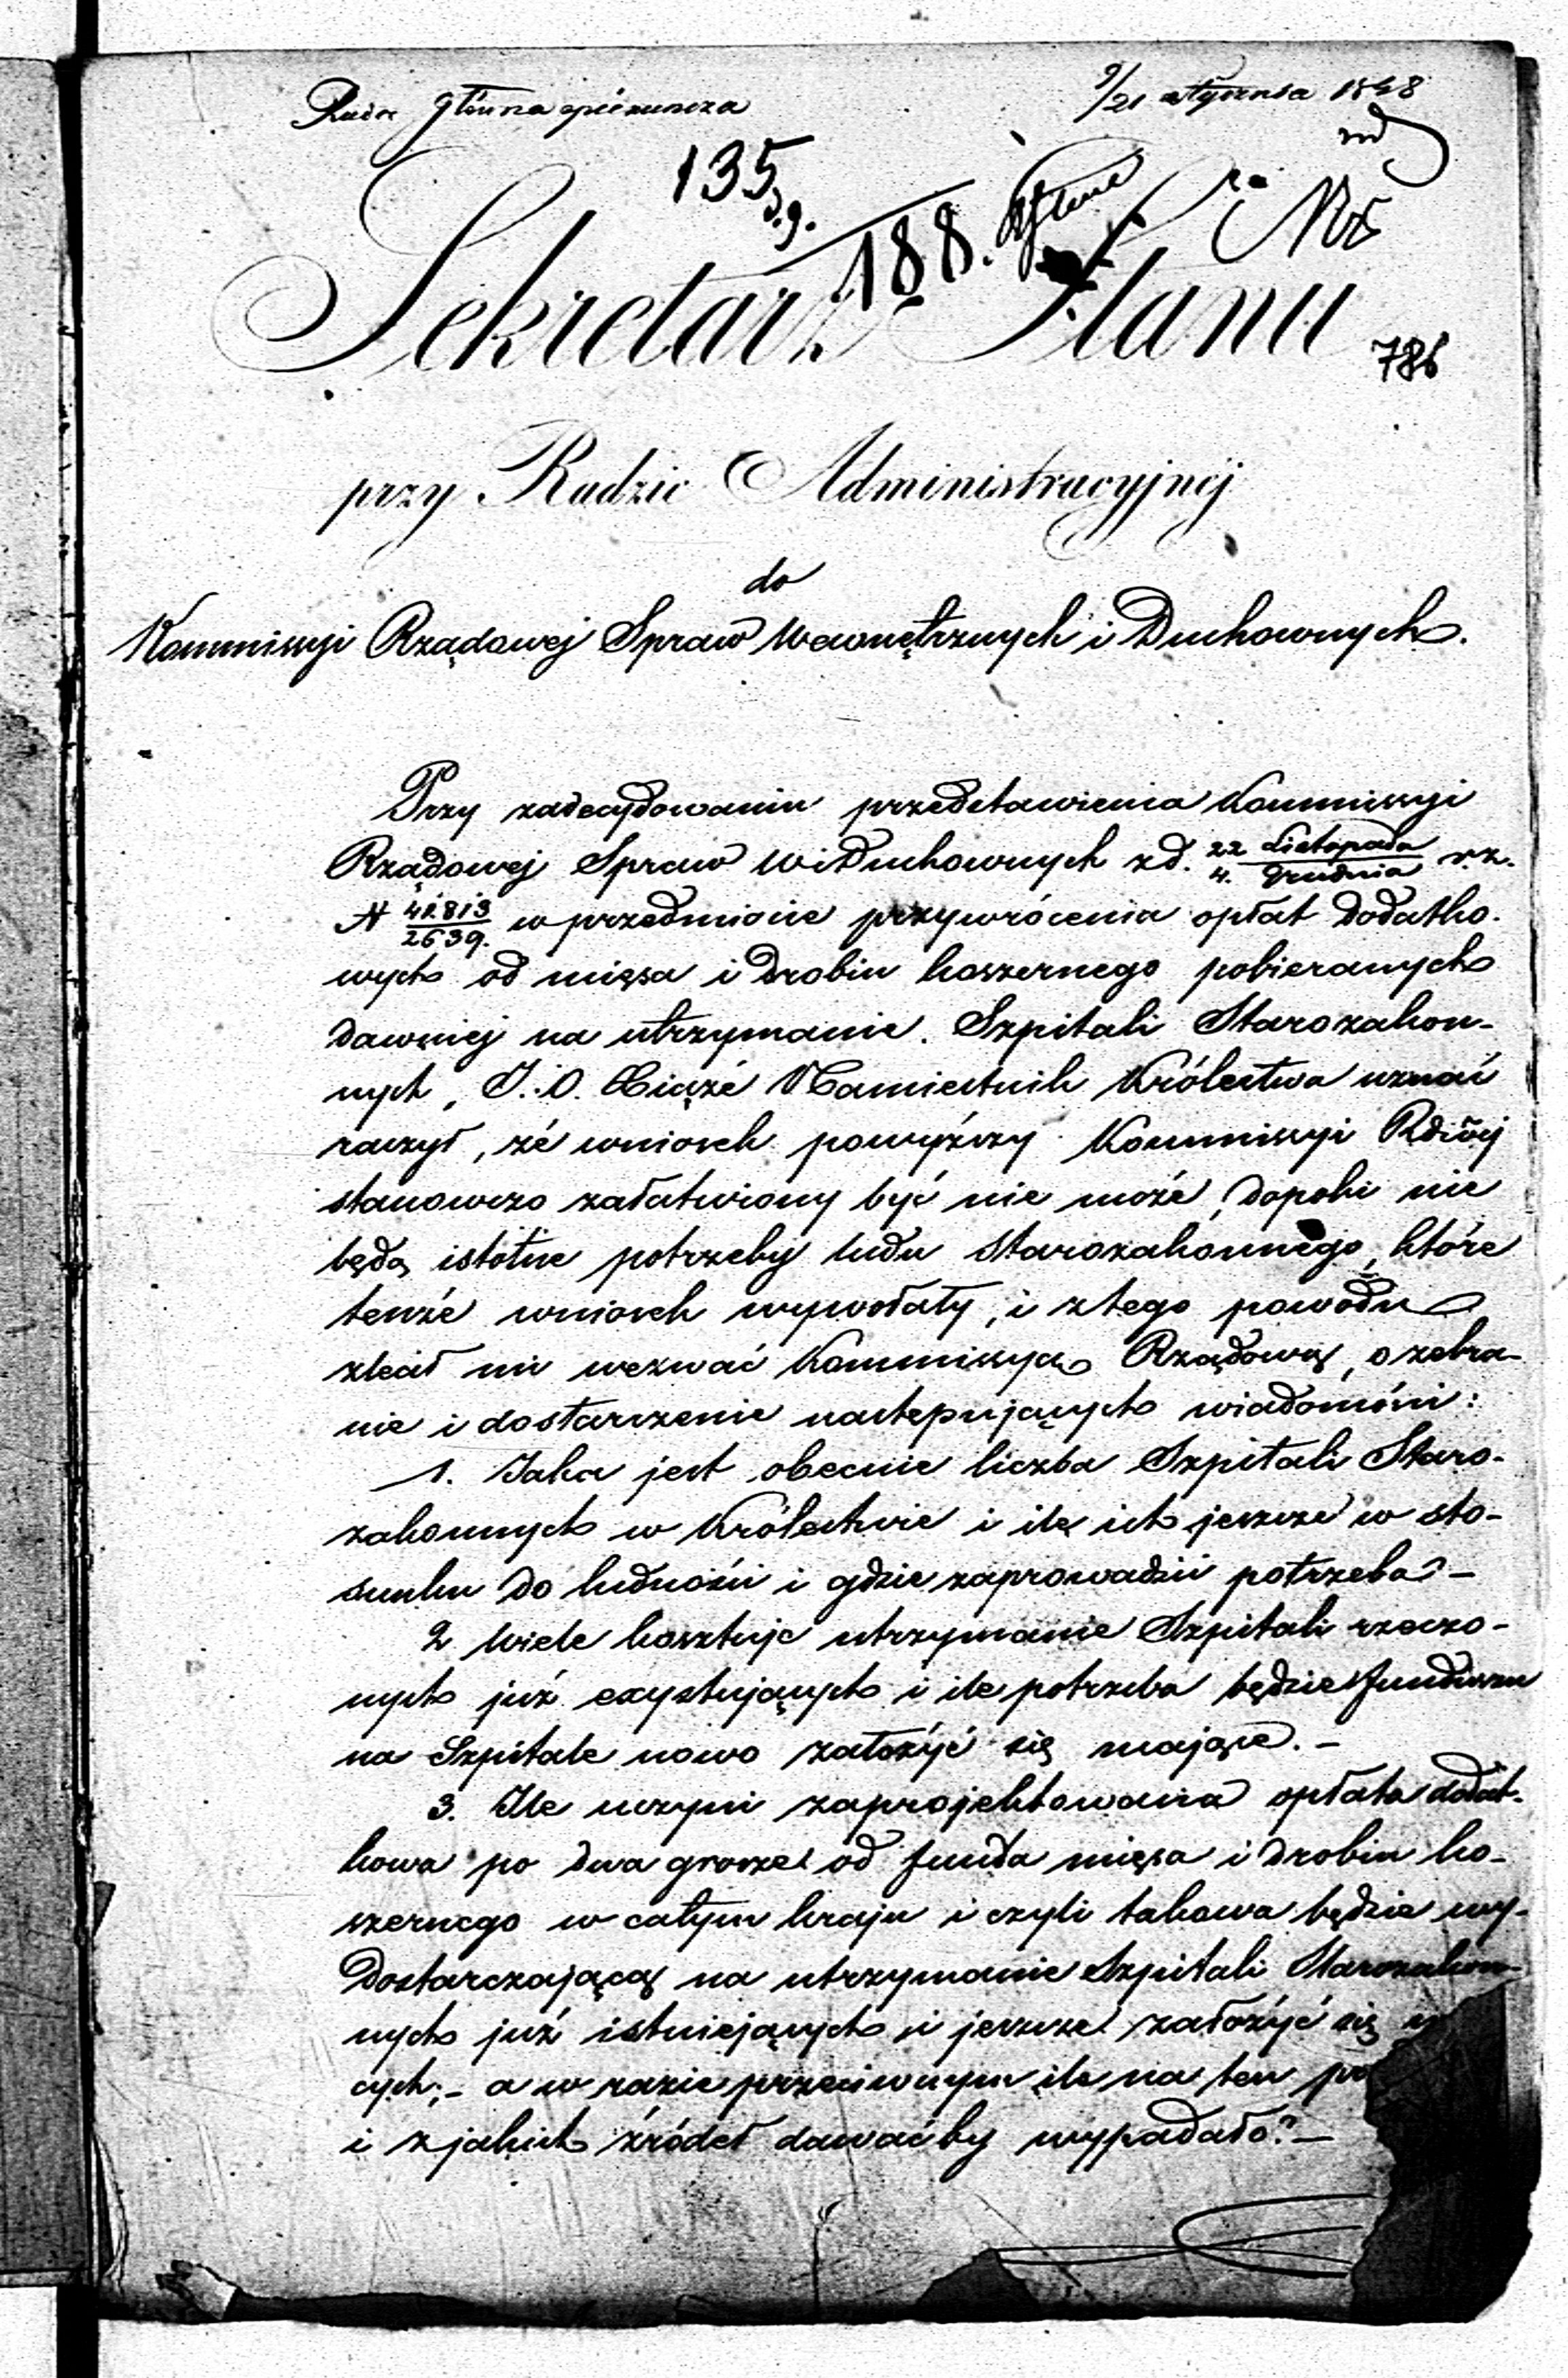 Rada Główna opiekuńcza
9/21 stycznia 1848
135
d.g.
188.
Sekretarz Stanu
786
przy Radzie Administracyjnéj
do
Kommissyi Rządowej Spraw Wewnętrznych i Duchownych.
Przy zadecydowaniu przedstawienia Kommissyi
Rządowej Spraw W i Duchownych z d. 22 Listopada / 4. Grudnia r.z.
N 41.813 / 2639. w przedmiocie przywrócenia opłat dodatko-
wych od mięsa i drobiu koszernego pobieranych
dawniej na utrzymanie Szpitali Starozakon-
nych, J. O. Xiąże Namiestnik Królestwa uznać
raczył, że wniosek powyższy Kommissyi Rdwéj
stanowczo załatwiony być nie może, dopoki nie
będą istotne potrzeby ludu starozakonnego, które
tenże wniosek wywołały, i z tego powodu
zlecił mi wezwać Kommissyą Rządową, o zebra-
nie i dostarczenie następujących wiadomości:
1. Jaka jest obecnie liczba Szpitali Staro-
zakonnych w Królestwie i ile ich jeszcze w sto-
sunku do ludności i gdzie zaprowadzić potrzeba? -
2 Wiele kosztuje utrzymanie Szpitali rzeczo-
nych już exystujących i ile potrzeba będzie funduszu
na Szpitale nowo założyć się mające. -
3. Ile uczyni zaprojektowana opłata dodat-
kowa po dwa grosze od funta mięsa i drobiu ko-
szernego w całym kraju i czyli takowa będzie wy-
dostarczającą na utrzymanie Szpitali Starozakon-
nych już istniejących i jeszcze założyć się
cych; - a w razie przeciwnym ile na ten
i z jakich źródeł dawać by wypadało? -